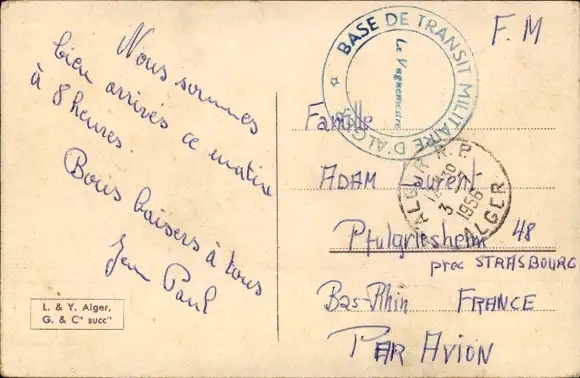 Nous sommes
bien arrivés ce matin
à 8 heures.
Bons baisers à tous
Jean Paul
L. & Y. Alger,
G. & Cº succʳˢ
F. M
BASE DE TRANSIT MILITAIRE D'ALGER
Le Vaguemestre
ALGER R.P.
3
1956
ALGER
Famille
ADAM Laurent
Pfulgriesheim 48
prec STRASBOURG
Bas-Rhin FRANCE
PAR AVION